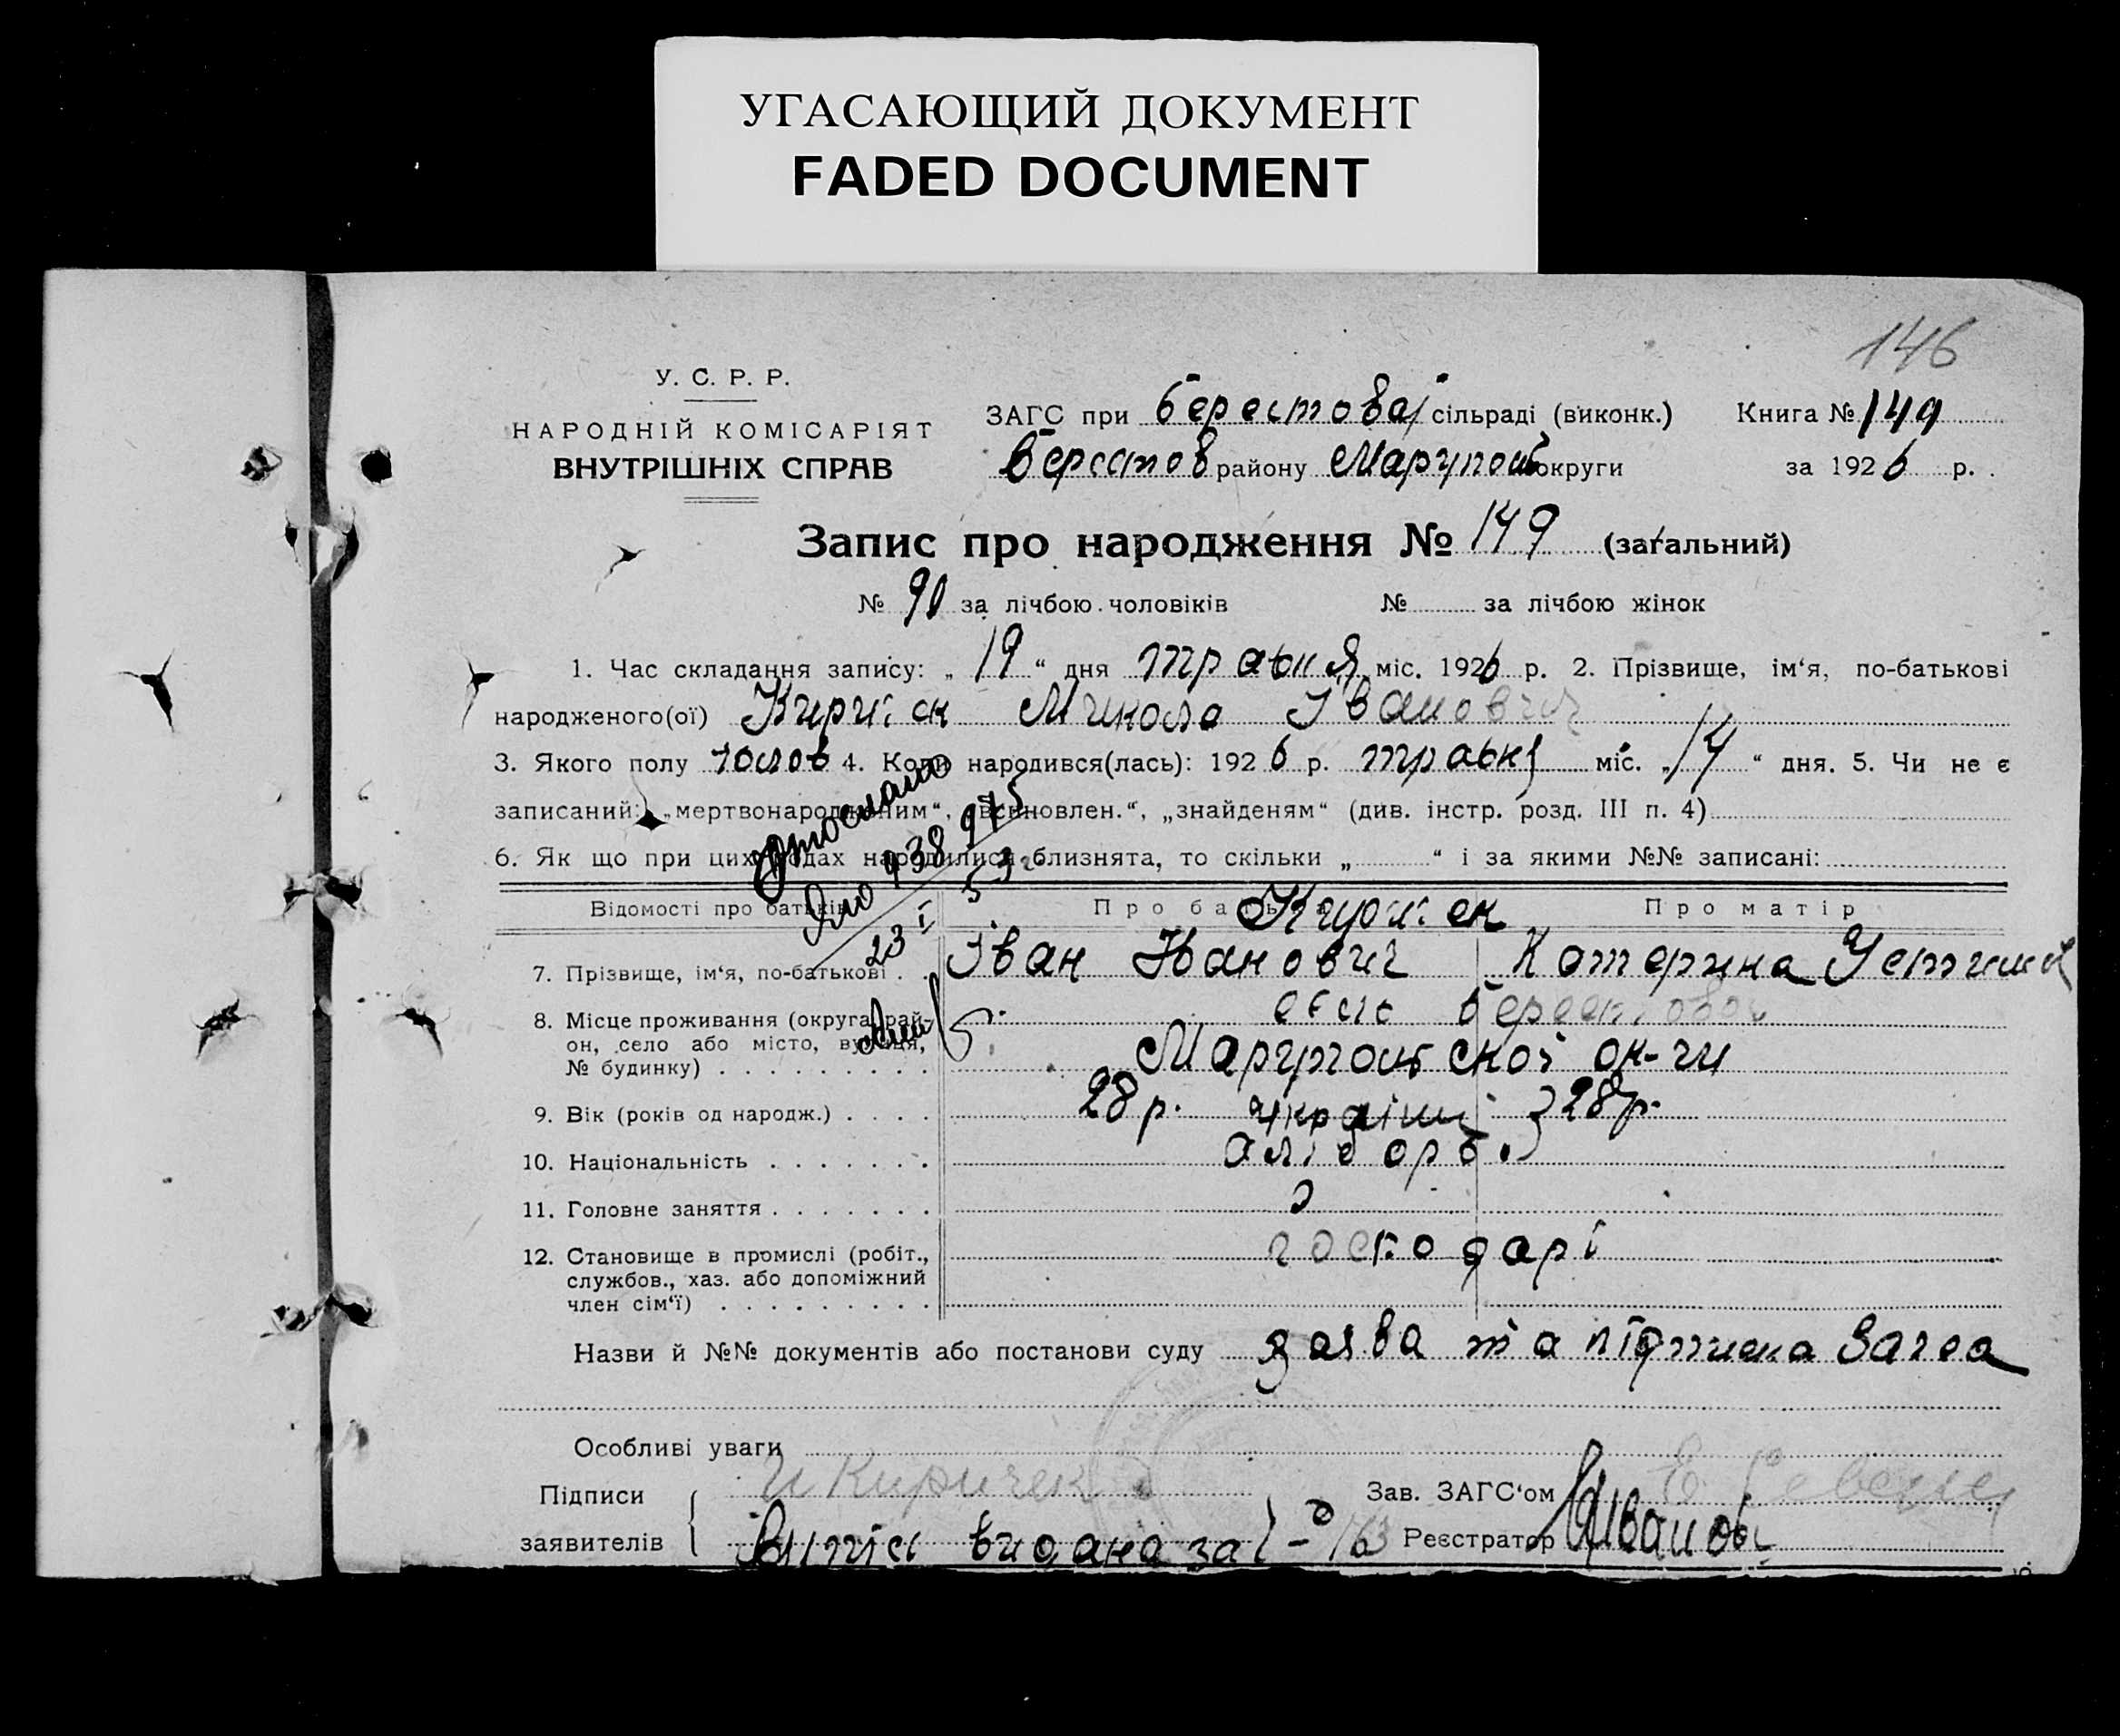 УГАСАЮЩИЙ ДОКУМЕНТ
FADED DOCUMENT
146
У. С. Р. Р.
НАРОДНІЙ КОМІСАРІЯТ
ВНУТРІШНІХ СПРАВ
ЗАГС при Берестовај сільраді (виконк.) Книга № 149
Берестов району Маріупольськ округи за 1926 р.
Запис про народження № 149 (загальний)
№ 90 за лічбою чоловіків № за лічбою жінок
1. Час складання запису: „ 19 “ дня травня міс. 1926 р. 2. Прізвище, ім‘я, по-батькові
народженого(ої) Киричек Микола Іванович
3. Якого полу чолов 4. Коли народився(лась): 1926 р. травня міс. „ 14 “ дня. 5. Чи не є
записаний: „мертвонародженим“, „всиновлен.“, „знайденям“ (див. інстр. розд. III п. 4)
6. Як що при цих родах народилися близнята, то скільки „ “ і за якими №№ записані:
Відомості про батьків Про батька Про матір
Киричек
7. Прізвище, ім‘я, по-батькові Іван Іванович Катерина
8. Місце проживання (округа, рай-
он, село або місто, вулиця,
№ будинку)
село Берестовој
Маріупольської ок-ги
9. Вік (років од народж.) 28 р. 28 р.
україн
10. Національність
хлібороб.
11. Головне заняття
12. Становище в промислі (робіт.,
службов., хаз. або допоміжний
член сім‘ї)
господарі
Назви й №№ документів або постанови суду заява та підписка Загса
Особливі уваги
Підписи
заявителів
И Киричек
Випис видана за
Зав. ЗАГС‘ом
Реєстратор